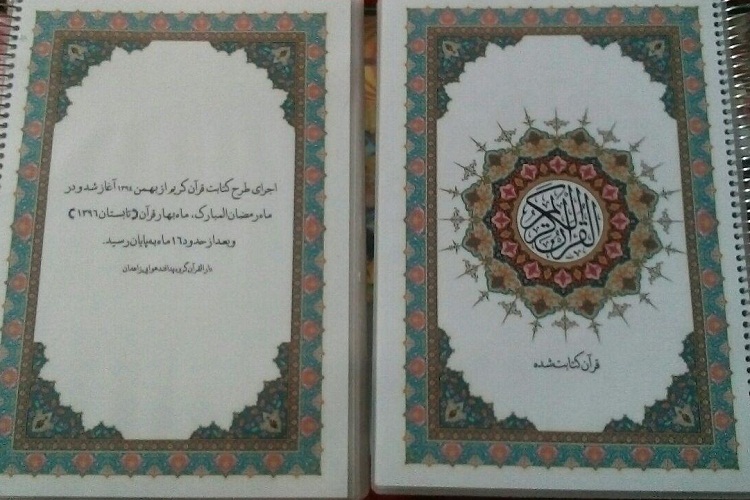 القرآن الكريم
قرآن کتابت شده
اجرای طرح کتابت قرآن کریم از بهمن ۱۳۹۴ آغاز شد و در
ماه رمضان المبارک، ماه بهار قرآن (تابستان ۱۳۹۶)
و بعد از حدود ۱۶ ماه به پایان رسید.
دارالقرآن گروه پدافند هوایی زاهدان